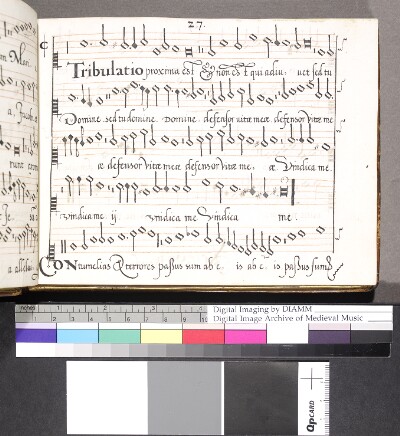 27.
Tribulatio proxima est & non est qui adiu: uet sed tu
Domine sed tu domine. Domine defensor vitæ meæ defensor vitæ me
æ defensor vitæ meæ. defensor vitæ me. æ. Vindica me.
vindica me ij vindica me Vindica me.
CONtumelias & terrores passus sum ab e. is ab e. is passus sum
a, alleluia
inches 1 2 3 4 5 6 7 8
Digital Imaging by DIAMM
Digital Image Archive of Medieval Music
QpCARD